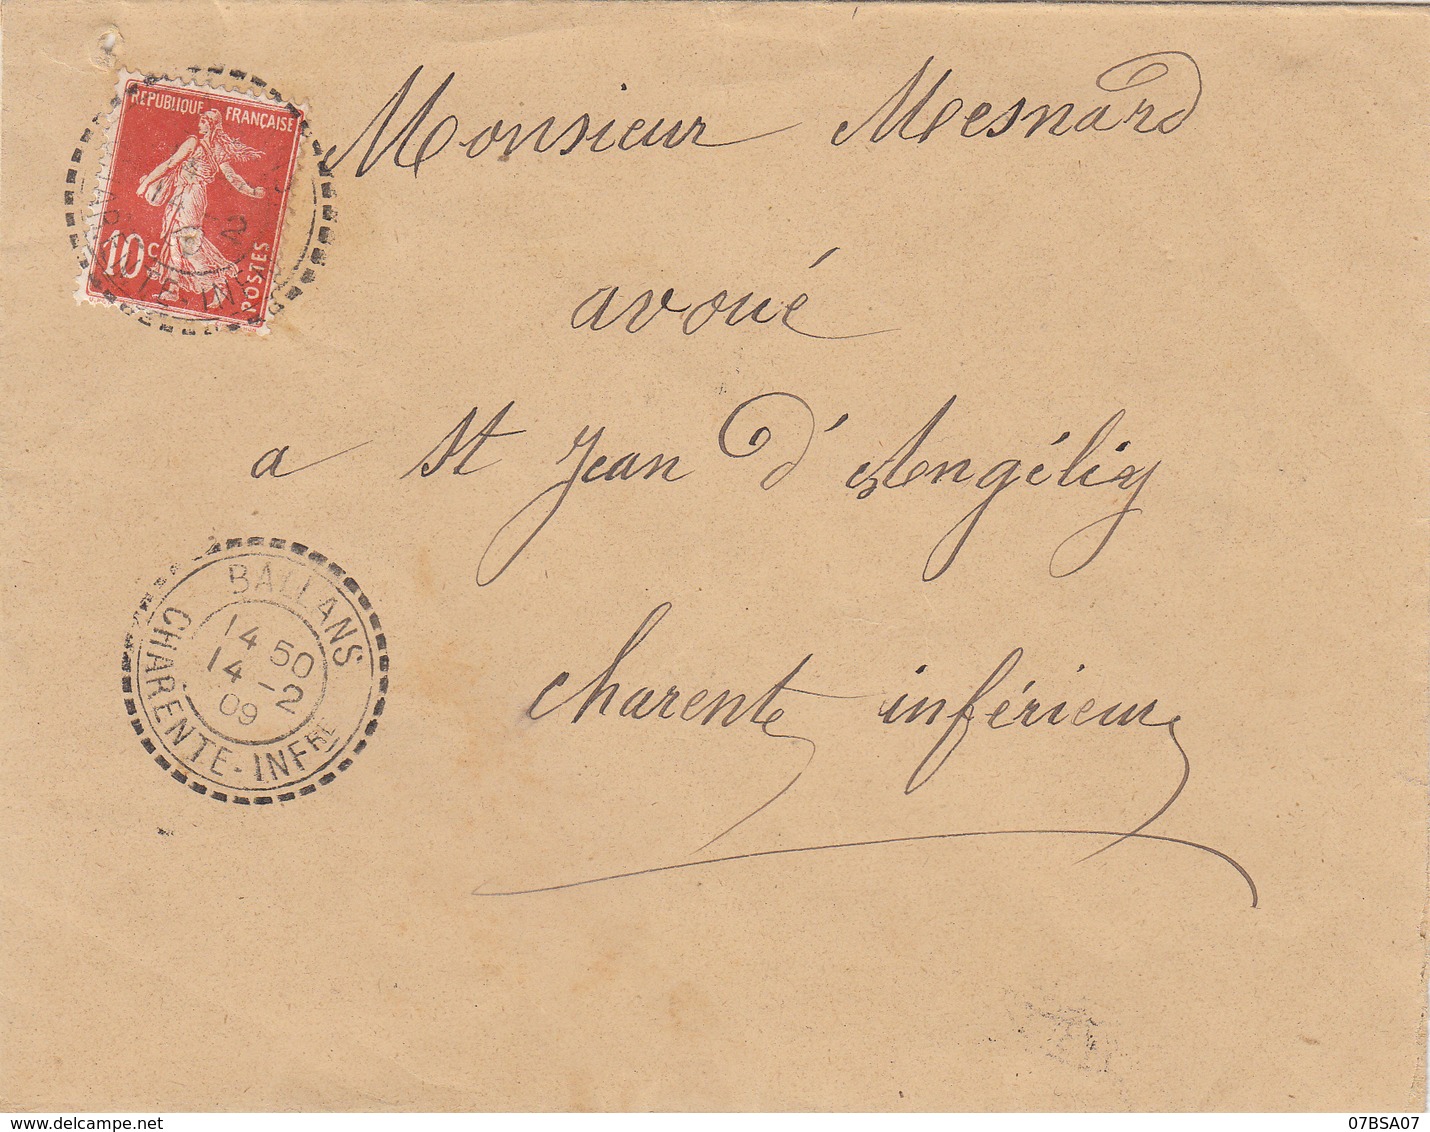 REPUBLIQUE FRANÇAISE
10c POSTES
14 -2
Monsieur Mesnard
avoué
a St Jean d'Angély
charente inférieure
BALLANS
14 50
14 -2
09
CHARENTE-INFRE
www.delcampe.net
07BSA07